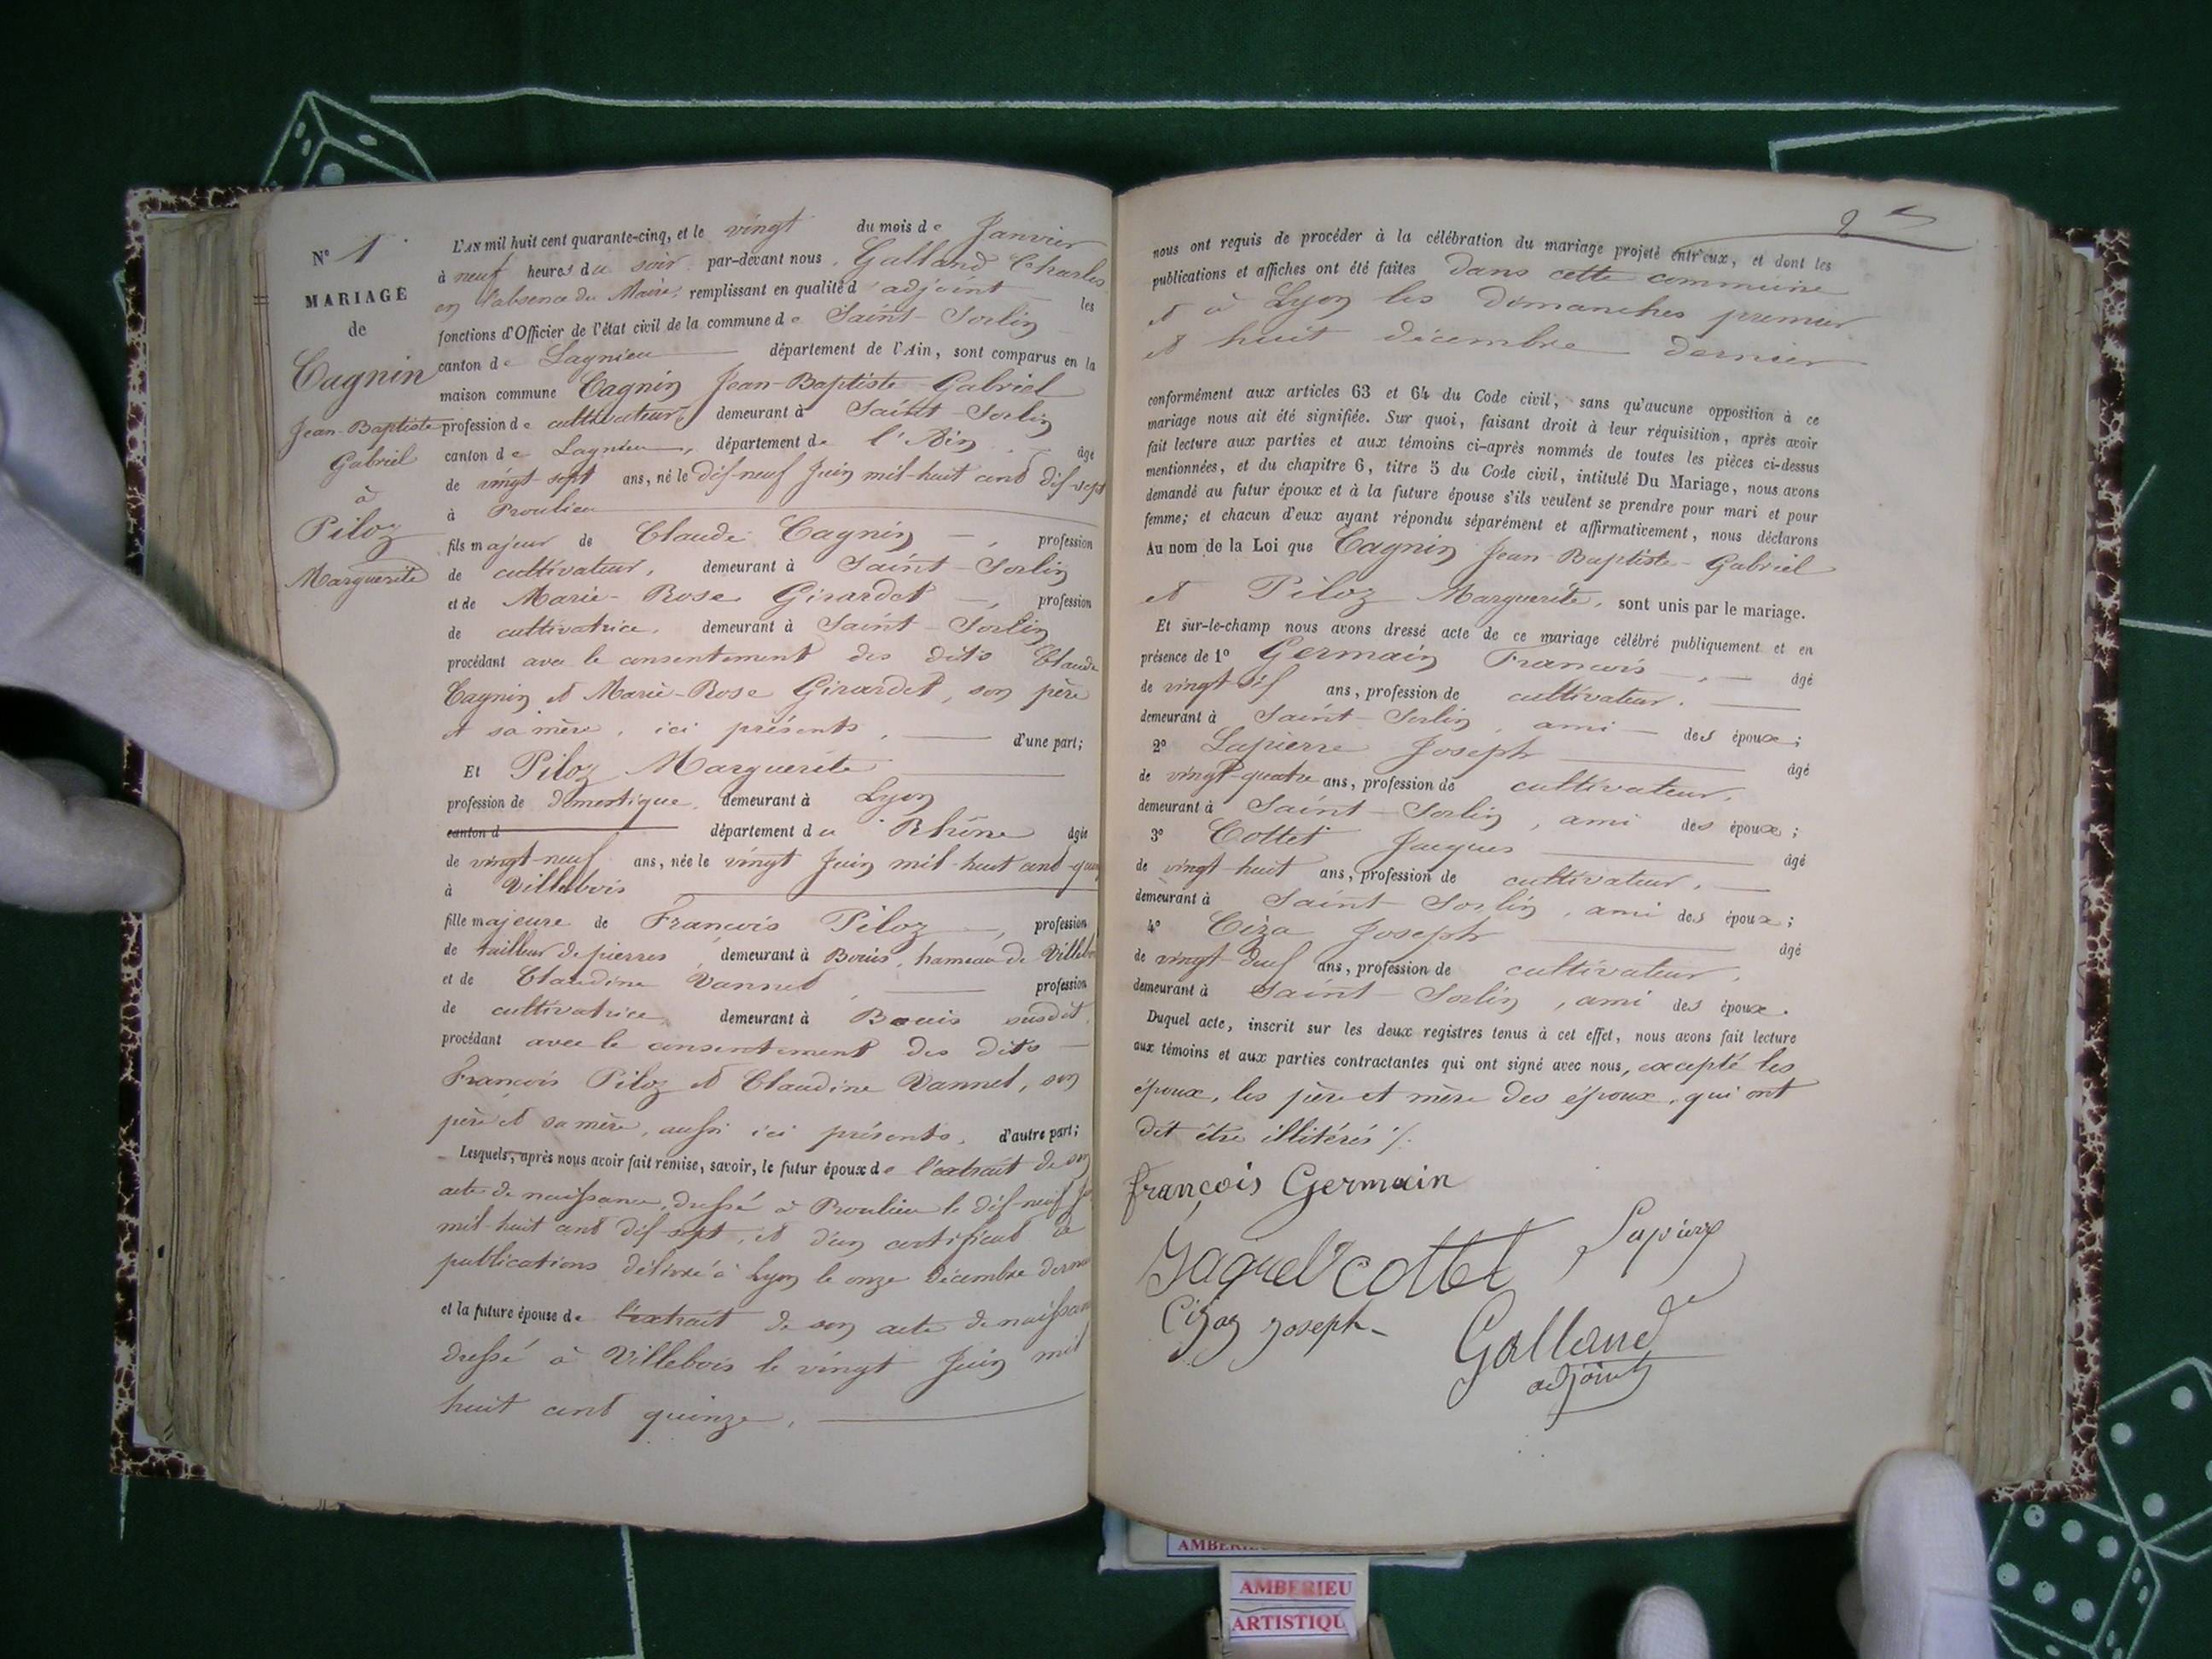 N° 1
MARIAGE
de
Cagnin
Jean-Baptiste
Gabriel
à
Piloz
Marguerite
L'AN mil huit cent quarante-cinq, et le vingt du mois de Janvier
à neuf heures du soir par-devant nous, Galland Charles
en l'absence du Maire, remplissant en qualité d'adjoint les
fonctions d'Officier de l'état civil de la commune de Saint-Sorlin
canton de Lagnieu département de l'Ain, sont comparus en la
maison commune Cagnin Jean-Baptiste-Gabriel
profession de cultivateur, demeurant à Saint-Sorlin
canton de Lagnieu, département de l'Ain âgé
de vingt-sept ans, né le dix-neuf Juin mil-huit cent dix-sept
à Proulieu
fils majeur de Claude Cagnin, profession
de cultivateur, demeurant à Saint-Sorlin
et de Marie-Rose Girardet, profession
de cultivatrice, demeurant à Saint-Sorlin
procédant avec le consentement des dits Claude
Cagnin et Marie-Rose Girardet, son père
et sa mère, ici présents, d'une part;
Et Piloz Marguerite
profession de domestique, demeurant à Lyon
canton d département du Rhône âgée
de vingt-neuf ans, née le vingt Juin mil-huit cent
à Villebois
fille majeure de François Piloz, profession
de tailleur de pierres, demeurant à Bouis, hameau de
et de Claudine Vannet, profession
de cultivatrice, demeurant à Bouis susdit,
procédant avec le consentement des dits
François Piloz et Claudine Vannet, son
père et sa mère, aussi ici présents, d'autre part;
Lesquels, après nous avoir fait remise, savoir, le futur époux de l'extrait de son
acte de naissance, dressé à Proulieu le dix-neuf
mil-huit cent dix-sept, et d'un certificat de
publications délivré à Lyon le onze Décembre
et la future épouse de l'extrait de son acte de
dressé à Villebois le vingt Juin mil
huit cent quinze,
2
nous ont requis de procéder à la célébration du mariage projeté entr'eux, et dont les
publications et affiches ont été faites dans cette commune
et à Lyon les dimanches premier
et huit décembre dernier
conformément aux articles 63 et 64 du Code civil, sans qu'aucune opposition à ce
mariage nous ait été signifiée. Sur quoi, faisant droit à leur réquisition, après avoir
fait lecture aux parties et aux témoins ci-après nommés de toutes les pièces ci-dessus
mentionnées, et du chapitre 6, titre 5 du Code civil, intitulé Du Mariage, nous avons
demandé au futur époux et à la future épouse s'ils veulent se prendre pour mari et pour
femme; et chacun d'eux ayant répondu séparément et affirmativement, nous déclarons
Au nom de la Loi que Cagnin Jean-Baptiste-Gabriel
et Piloz Marguerite, sont unis par le mariage.
Et sur-le-champ nous avons dressé acte de ce mariage célébré publiquement et en
présence de 1° Germain François âgé
de vingt-six ans, profession de cultivateur,
demeurant à Saint-Sorlin, ami des époux;
2° Lapierre Joseph âgé
de vingt-quatre ans, profession de cultivateur,
demeurant à Saint-Sorlin, ami des époux;
3° Cottet Jacques âgé
de vingt-huit ans, profession de cultivateur,
demeurant à Saint-Sorlin, ami des époux;
4° Ciza Joseph âgé
de vingt-deux ans, profession de cultivateur,
demeurant à Saint-Sorlin, ami des époux.
Duquel acte, inscrit sur les deux registres tenus à cet effet, nous avons fait lecture
aux témoins et aux parties contractantes qui ont signé avec nous, excepté les
époux, les père et mère des époux, qui ont
dit être illitérés ./.
françois Germain
Lapierre
cottet
joseph
Galland
adjoint
AMBERIEU
ARTISTIQU